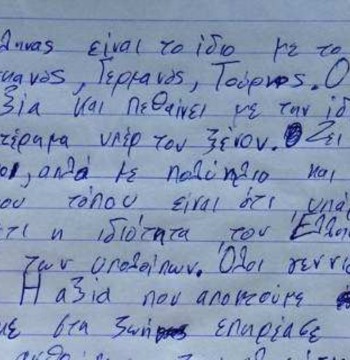 ληνας είναι το ίδιο με το
κανος, Γερμανός, Τούρκος. Ο
ξία και πεθαίνει με την ίδ
τέραμα υπέρ του ξένου. Ζει
οι, αλλά με πολύ ήλιο και
του τόπου είναι ότι υπά
ότι η ιδιότητα του Έλλη
των υπολοίπων. Όλοι γεννιο
Η αξία που αποκτούμε
με στα ζωή επηρέασε